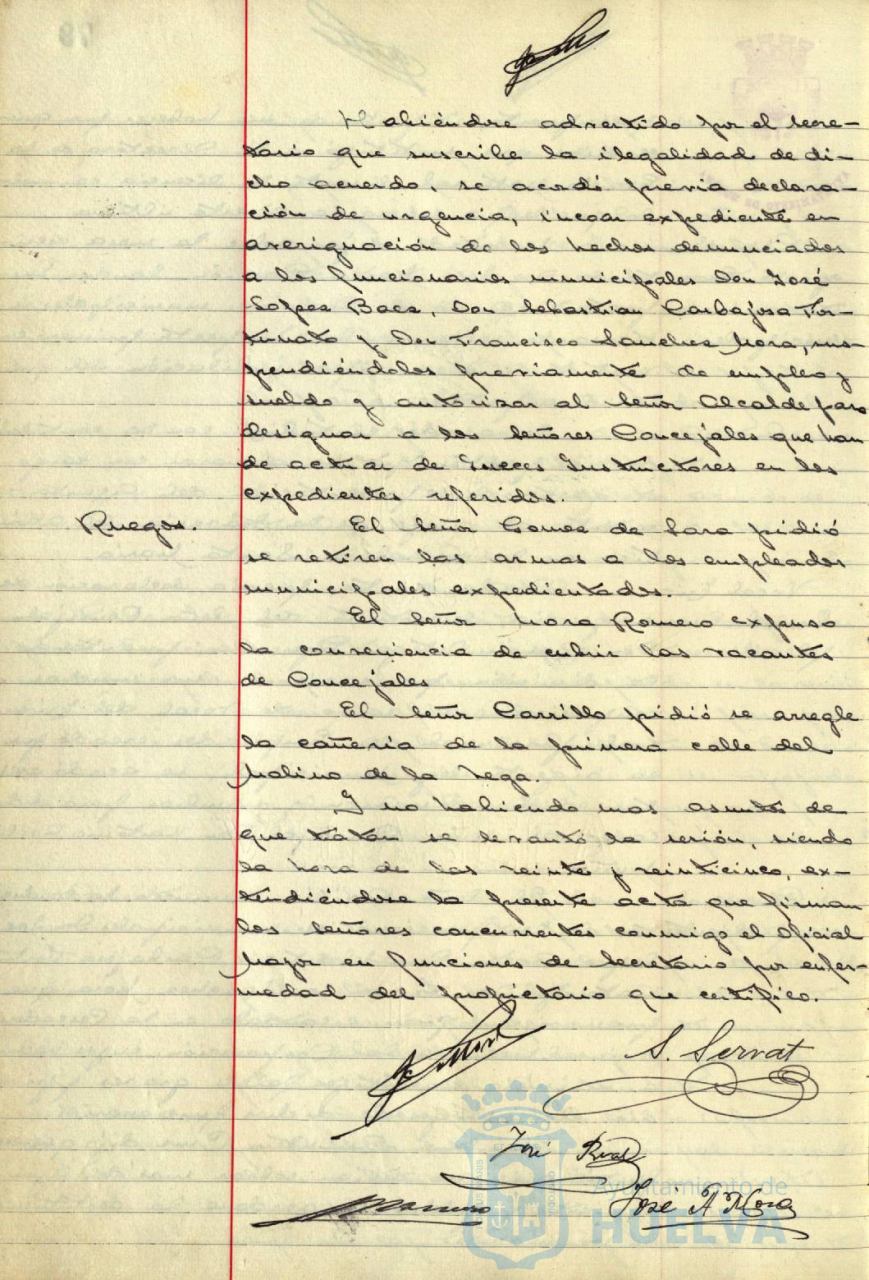 Habiéndose advertido por el secre-
tario que suscribe la ilegalidad de di-
cho acuerdo, se acordó previa declara-
ción de urgencia, incoar expediente en
averiguación de los hechos denunciados
a los funcionarios municipales Don José
López Baca, Don Sebastian Carbajosa For-
tunato y Don Francisco Sanchez Mora, sus-
pendiéndolos previamente de empleo y
sueldo y autorizar al Señor Alcalde para
designar a los Señores Concejales que han
de actuar de Jueces Instructores en los
expedientes referidos.
Ruegos.
El Señor Gomez de Lara pidió
se retiren las armas a los empleados
municipales expedientados.
El Señor Mora Romero expuso
la conveniencia de cubrir las vacantes
de Concejales
El Señor Carrillo pidió se arregle
la cañeria de la primera calle del
Molino de la Vega.
Y no habiendo mas asuntos de
que tratar se levantó la sesión, siendo
la hora de las veinte y veinticinco, ex-
tendiéndose la presente acta que firman
los Señores concurrentes conmigo el Oficial
Mayor en funciones de Secretario por enfer-
medad del propietario que certifico.
S. Servat
José
José A Mora
Ayuntamiento de
HUELVA